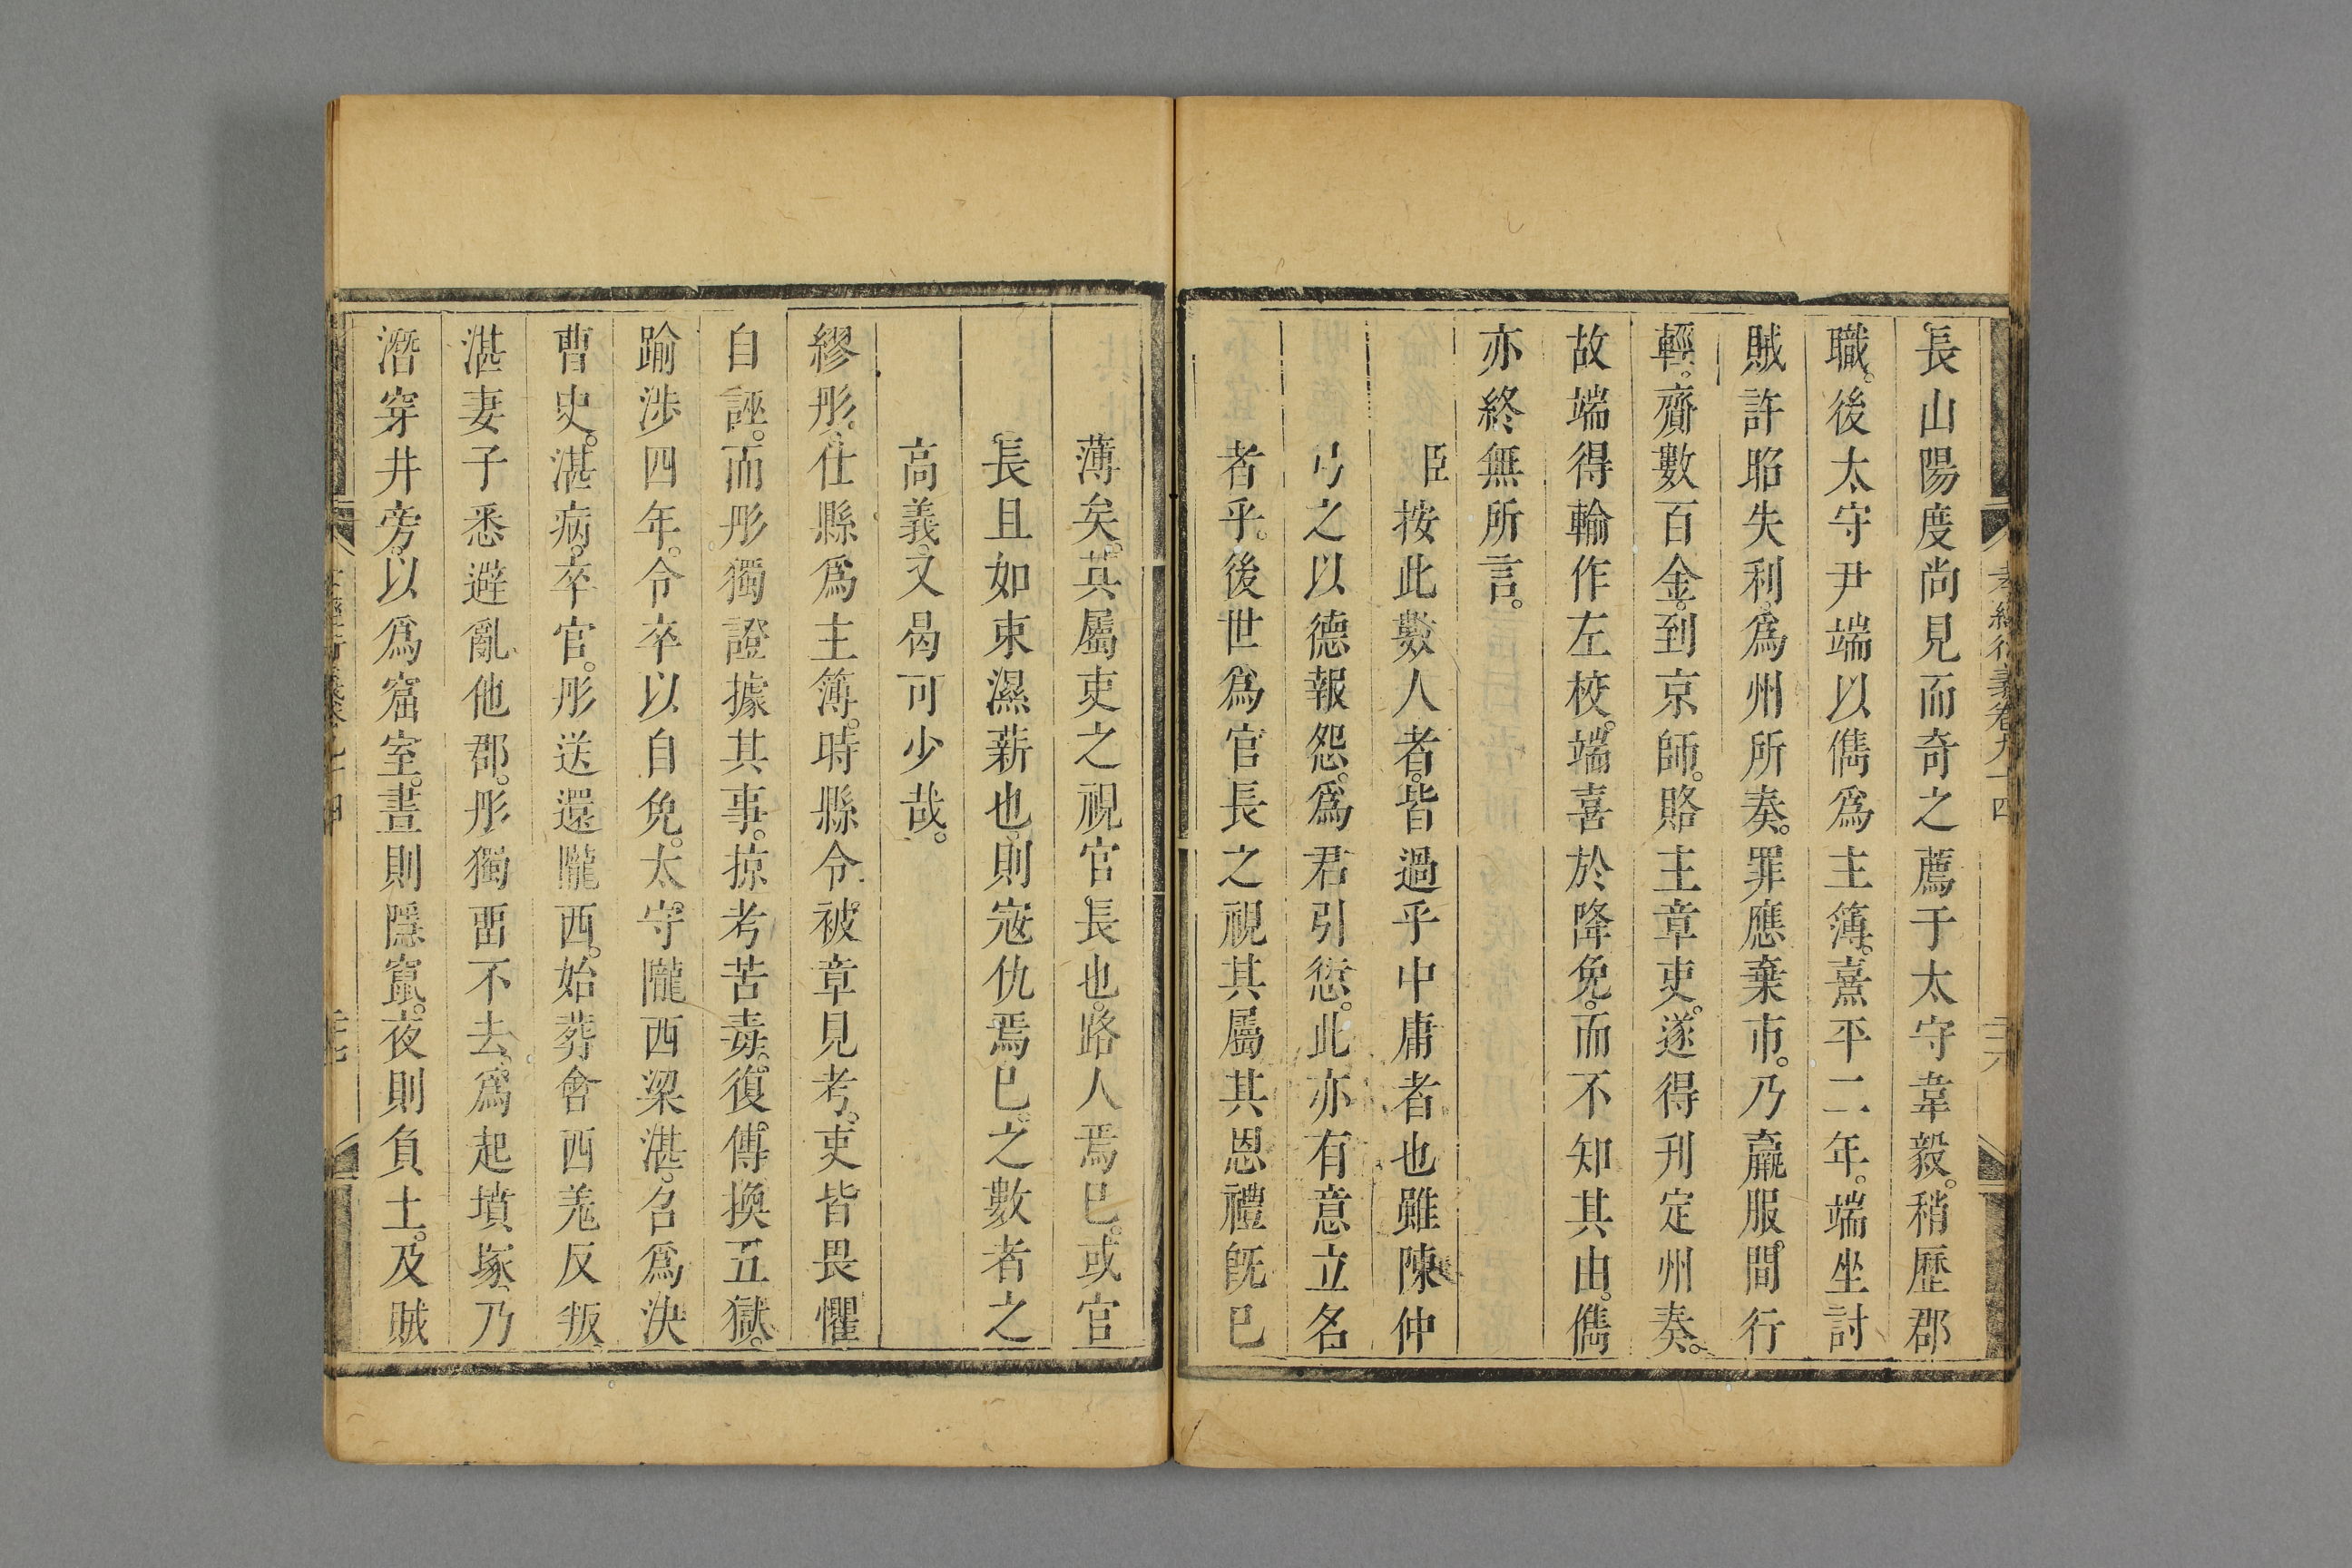 長山陽度尚見而奇之薦于太守韋毅。稍歷郡
職。後太守尹端以儁爲主簿。熹平二年。端坐討
賊許昭失利。爲州所奏。罪應棄市。乃羸服。間行
輕。齎數百金。到京師。賂主章吏。遂得刋定州奏。
故端得輸作左校。端喜於降免。而不知其由。儁
亦終無所言。
臣按此數人者。皆過乎中庸者也雖陳仲
弓之以德報怨。爲君引愆。此亦有意立名
者乎。後世爲官長之視其屬其恩禮旣巳
孝經衍義卷九十四
二十六
薄矣。其屬吏之視官長也。路人焉巳。或官
長且如束濕薪也。則寇仇焉巳。之數者之
高義。又曷可少哉。
繆肜。仕縣爲主簿。時縣令。被章見考。吏皆畏懼
自誣。而肜獨證據其事。掠考苦毒。復。傳換五獄。
踰涉四年。令卒以自免。太守。隴西梁湛。召爲決
曹史。湛病。卒官。肜送還隴西。始葬會西羌反叛
湛妻子悉避亂他郡。肜獨畱不去。爲起墳塚乃
潛穿井旁。以爲窟室。晝則隱竄。夜則負土。及賊